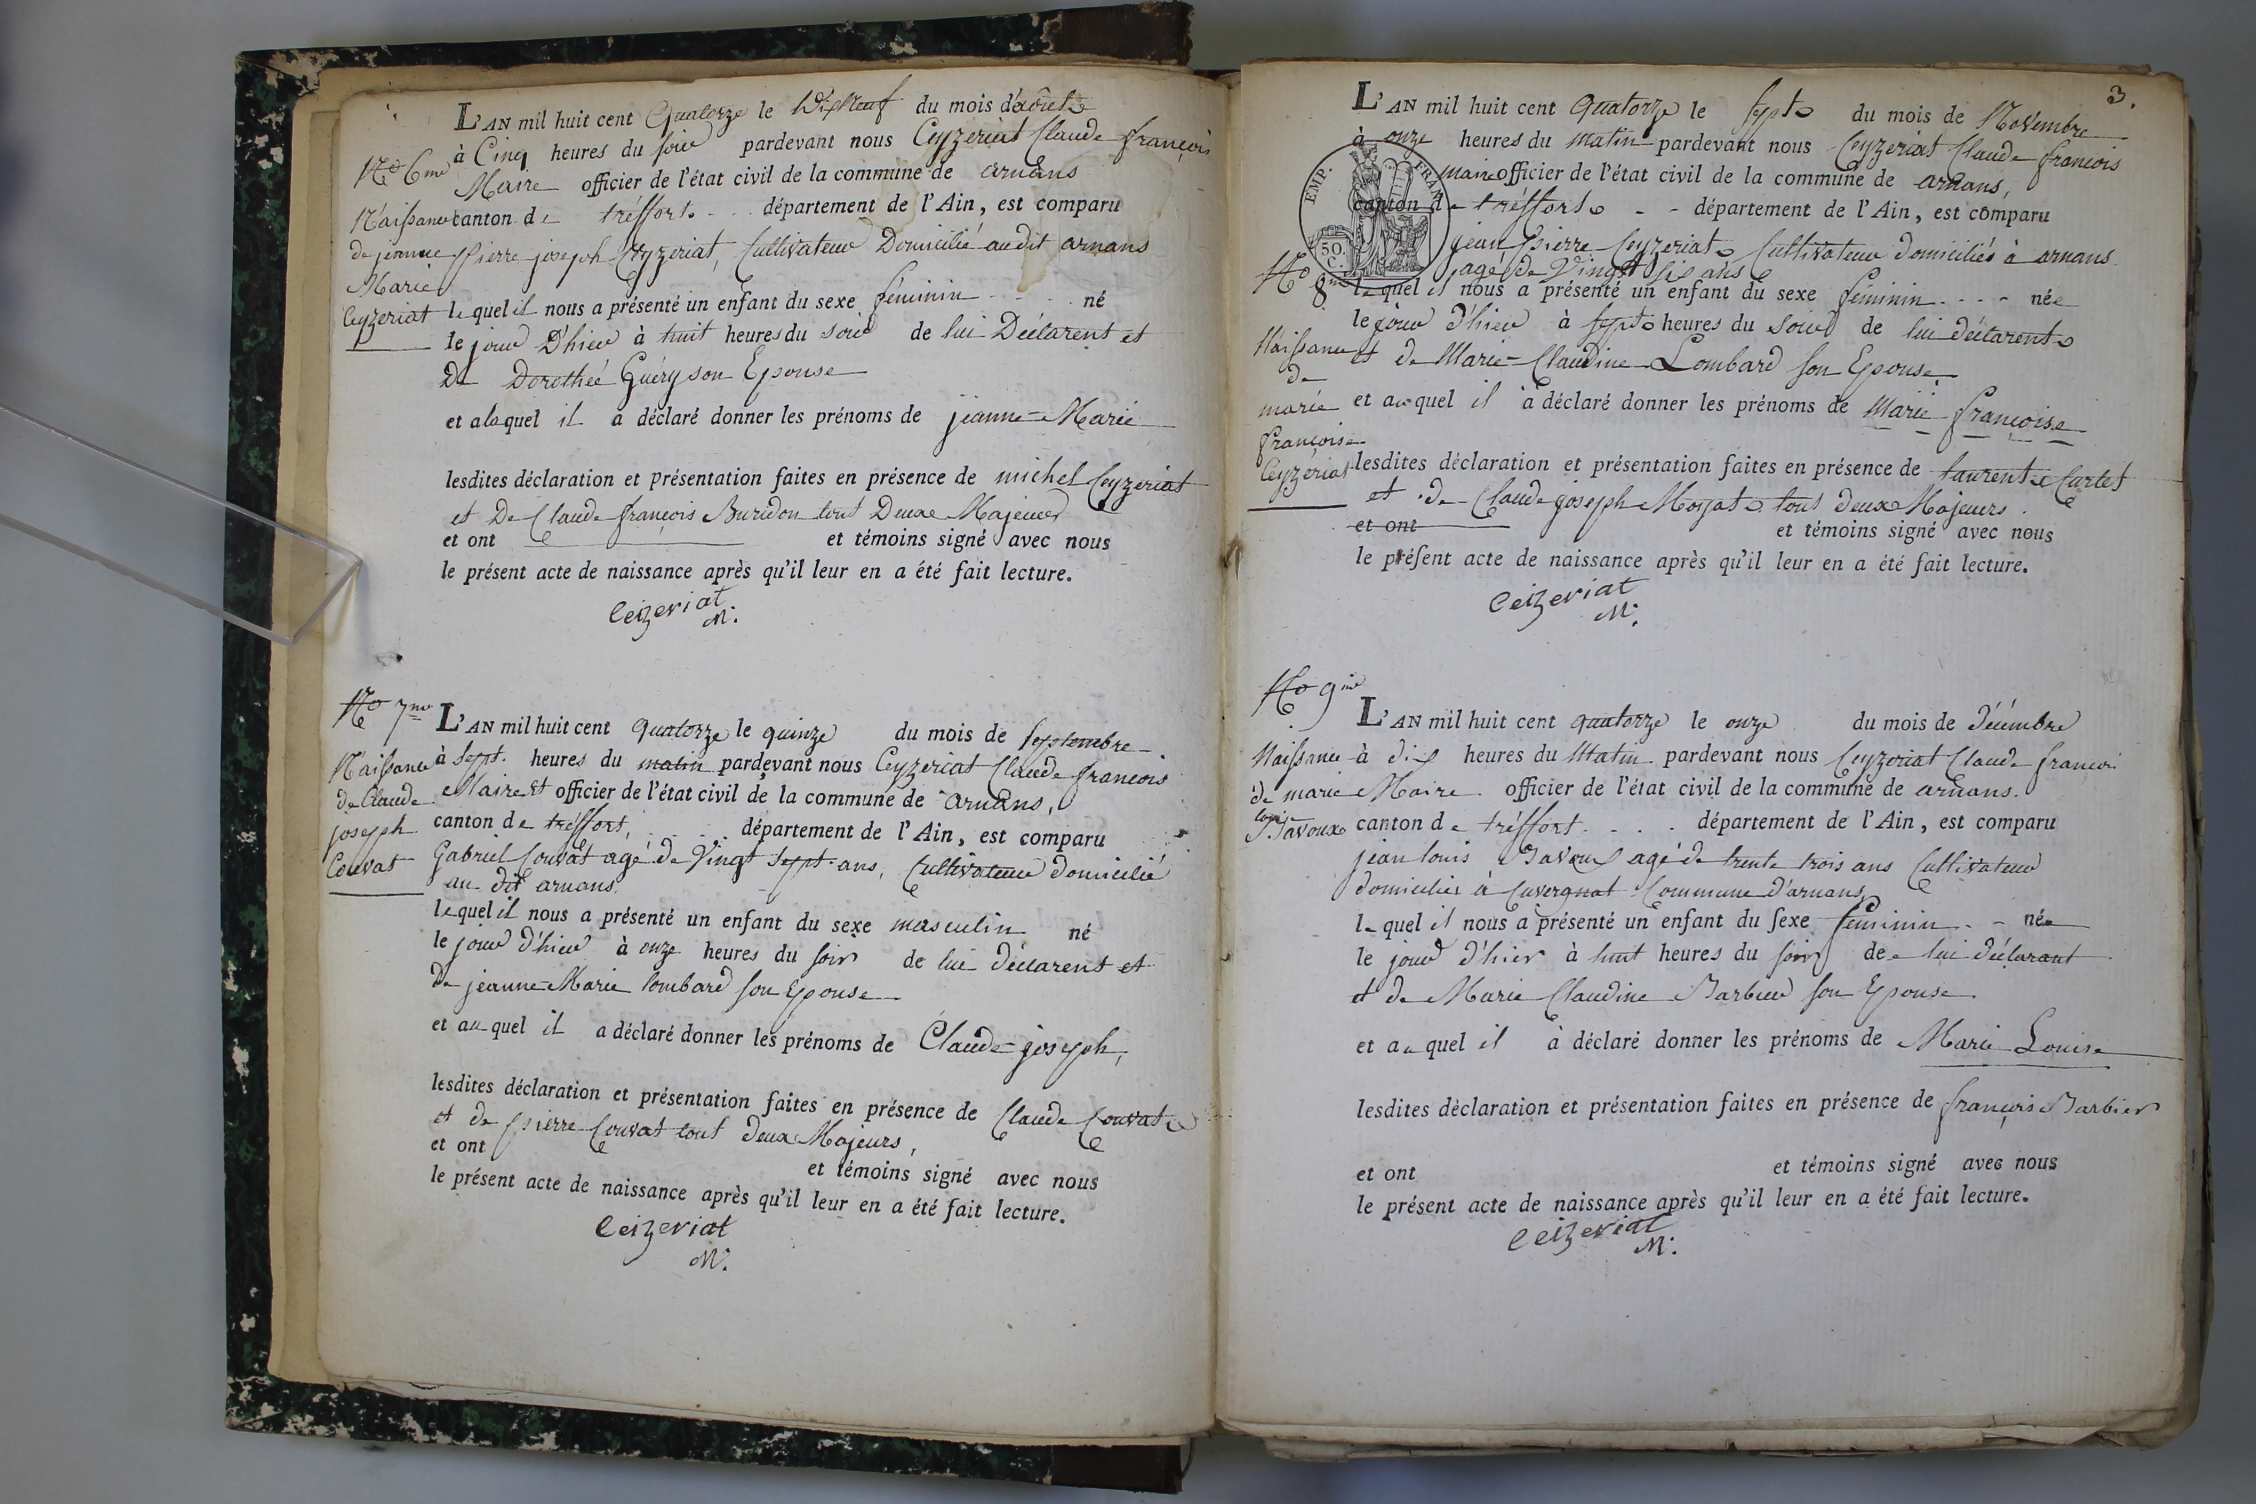 L'AN mil huit cent Quatorze le Dixneuf du mois d'août
No 6me à Cinq heures du soir pardevant nous Ceyzeriat Claude françois
Maire officier de l'état civil de la commune de arnans
Naissance canton de tréffort département de l'Ain, est comparu
de jeanne pierre joseph Ceyzeriat, Cultivateur Domicilié audit arnans
Marie
Ceyzeriat lequel il nous a présenté un enfant du sexe féminin né
le jour D'hier à huit heures du soir de lui Déclarent et
De Dorothée Guéry son Epouse
et alaquel il a déclaré donner les prénoms de jeanne-Marie
lesdites déclaration et présentation faites en présence de michel Ceyzeriat
et De Claude françois Buridon tout Deux Majeurs
et ont et témoins signé avec nous
le présent acte de naissance après qu'il leur en a été fait lecture.
Ceizeriat
M.
No 7me L'AN mil huit cent quatorze le quinze du mois de septembre
Naissance à sept heures du matin pardevant nous Ceyzeriat Claude françois
de Claude Maire et officier de l'état civil de la commune de arnans,
joseph canton de tréffort, département de l'Ain, est comparu
Couvat Gabriel Couvat agé de Vingt sept ans, Cultivateur domicilié
au dit arnans.
lequel il nous a présenté un enfant du sexe masculin né
le jour d'hier à onze heures du soir de lui déclarent et
de jeanne-Marie lombard son Epouse
et au quel il a déclaré donner les prénoms de Claude-joseph,
lesdites déclaration et présentation faites en présence de Claude Couvat
et de pierre Couvat tout deux Majeurs,
et ont et témoins signé avec nous
le présent acte de naissance après qu'il leur en a été fait lecture.
Ceizeriat
M.
3.
L'AN mil huit cent quatorze le sept du mois de Novembre
à onze heures du matin pardevant nous Ceyzeriat Claude françois
maire officier de l'état civil de la commune de arnans,
canton de tréffort département de l'Ain, est comparu
TEMP. FRAN
50 C.
jean pierre Ceyzeriat Cultivateur domiciliés à arnans
agé de Vingt six ans
No 8me lequel il nous a présenté un enfant du sexe féminin née
le jour d'hier à sept heures du soir de lui déclarent
Naissance et de Marie-Claudine Lombard son Epouse
de
marie et au quel il à déclaré donner les prénoms de Marie françoise
françoise
Ceyzériat lesdites déclaration et présentation faites en présence de laurent Curtet
et de Claude joseph Moyat tous deux Majeurs.
et ont et témoins signé avec nous
le présent acte de naissance après qu'il leur en a été fait lecture.
Ceizeriat
M.
No 9me
L'AN mil huit cent quatorze le onze du mois de décembre
Naissance à dix heures du Matin pardevant nous Ceyzeriat Claude françoi
de marie Maire officier de l'état civil de la commune de arnans.
Bavoux canton de tréffort département de l'Ain, est comparu
jean louis Bavoux agé de trente trois ans Cultivateur
domiciliés à Cuvergnat Commune d'arnans
lequel il nous a présenté un enfant du sexe féminin née
le jour d'hier à huit heures du soir de lui déclarant
et de Marie Claudine Barbier son Epouse
et au quel il à déclaré donner les prénoms de Marie Louise
lesdites déclaration et présentation faites en présence de françois Barbier
et ont et témoins signé avec nous
le présent acte de naissance après qu'il leur en a été fait lecture.
Ceizeriat
M.